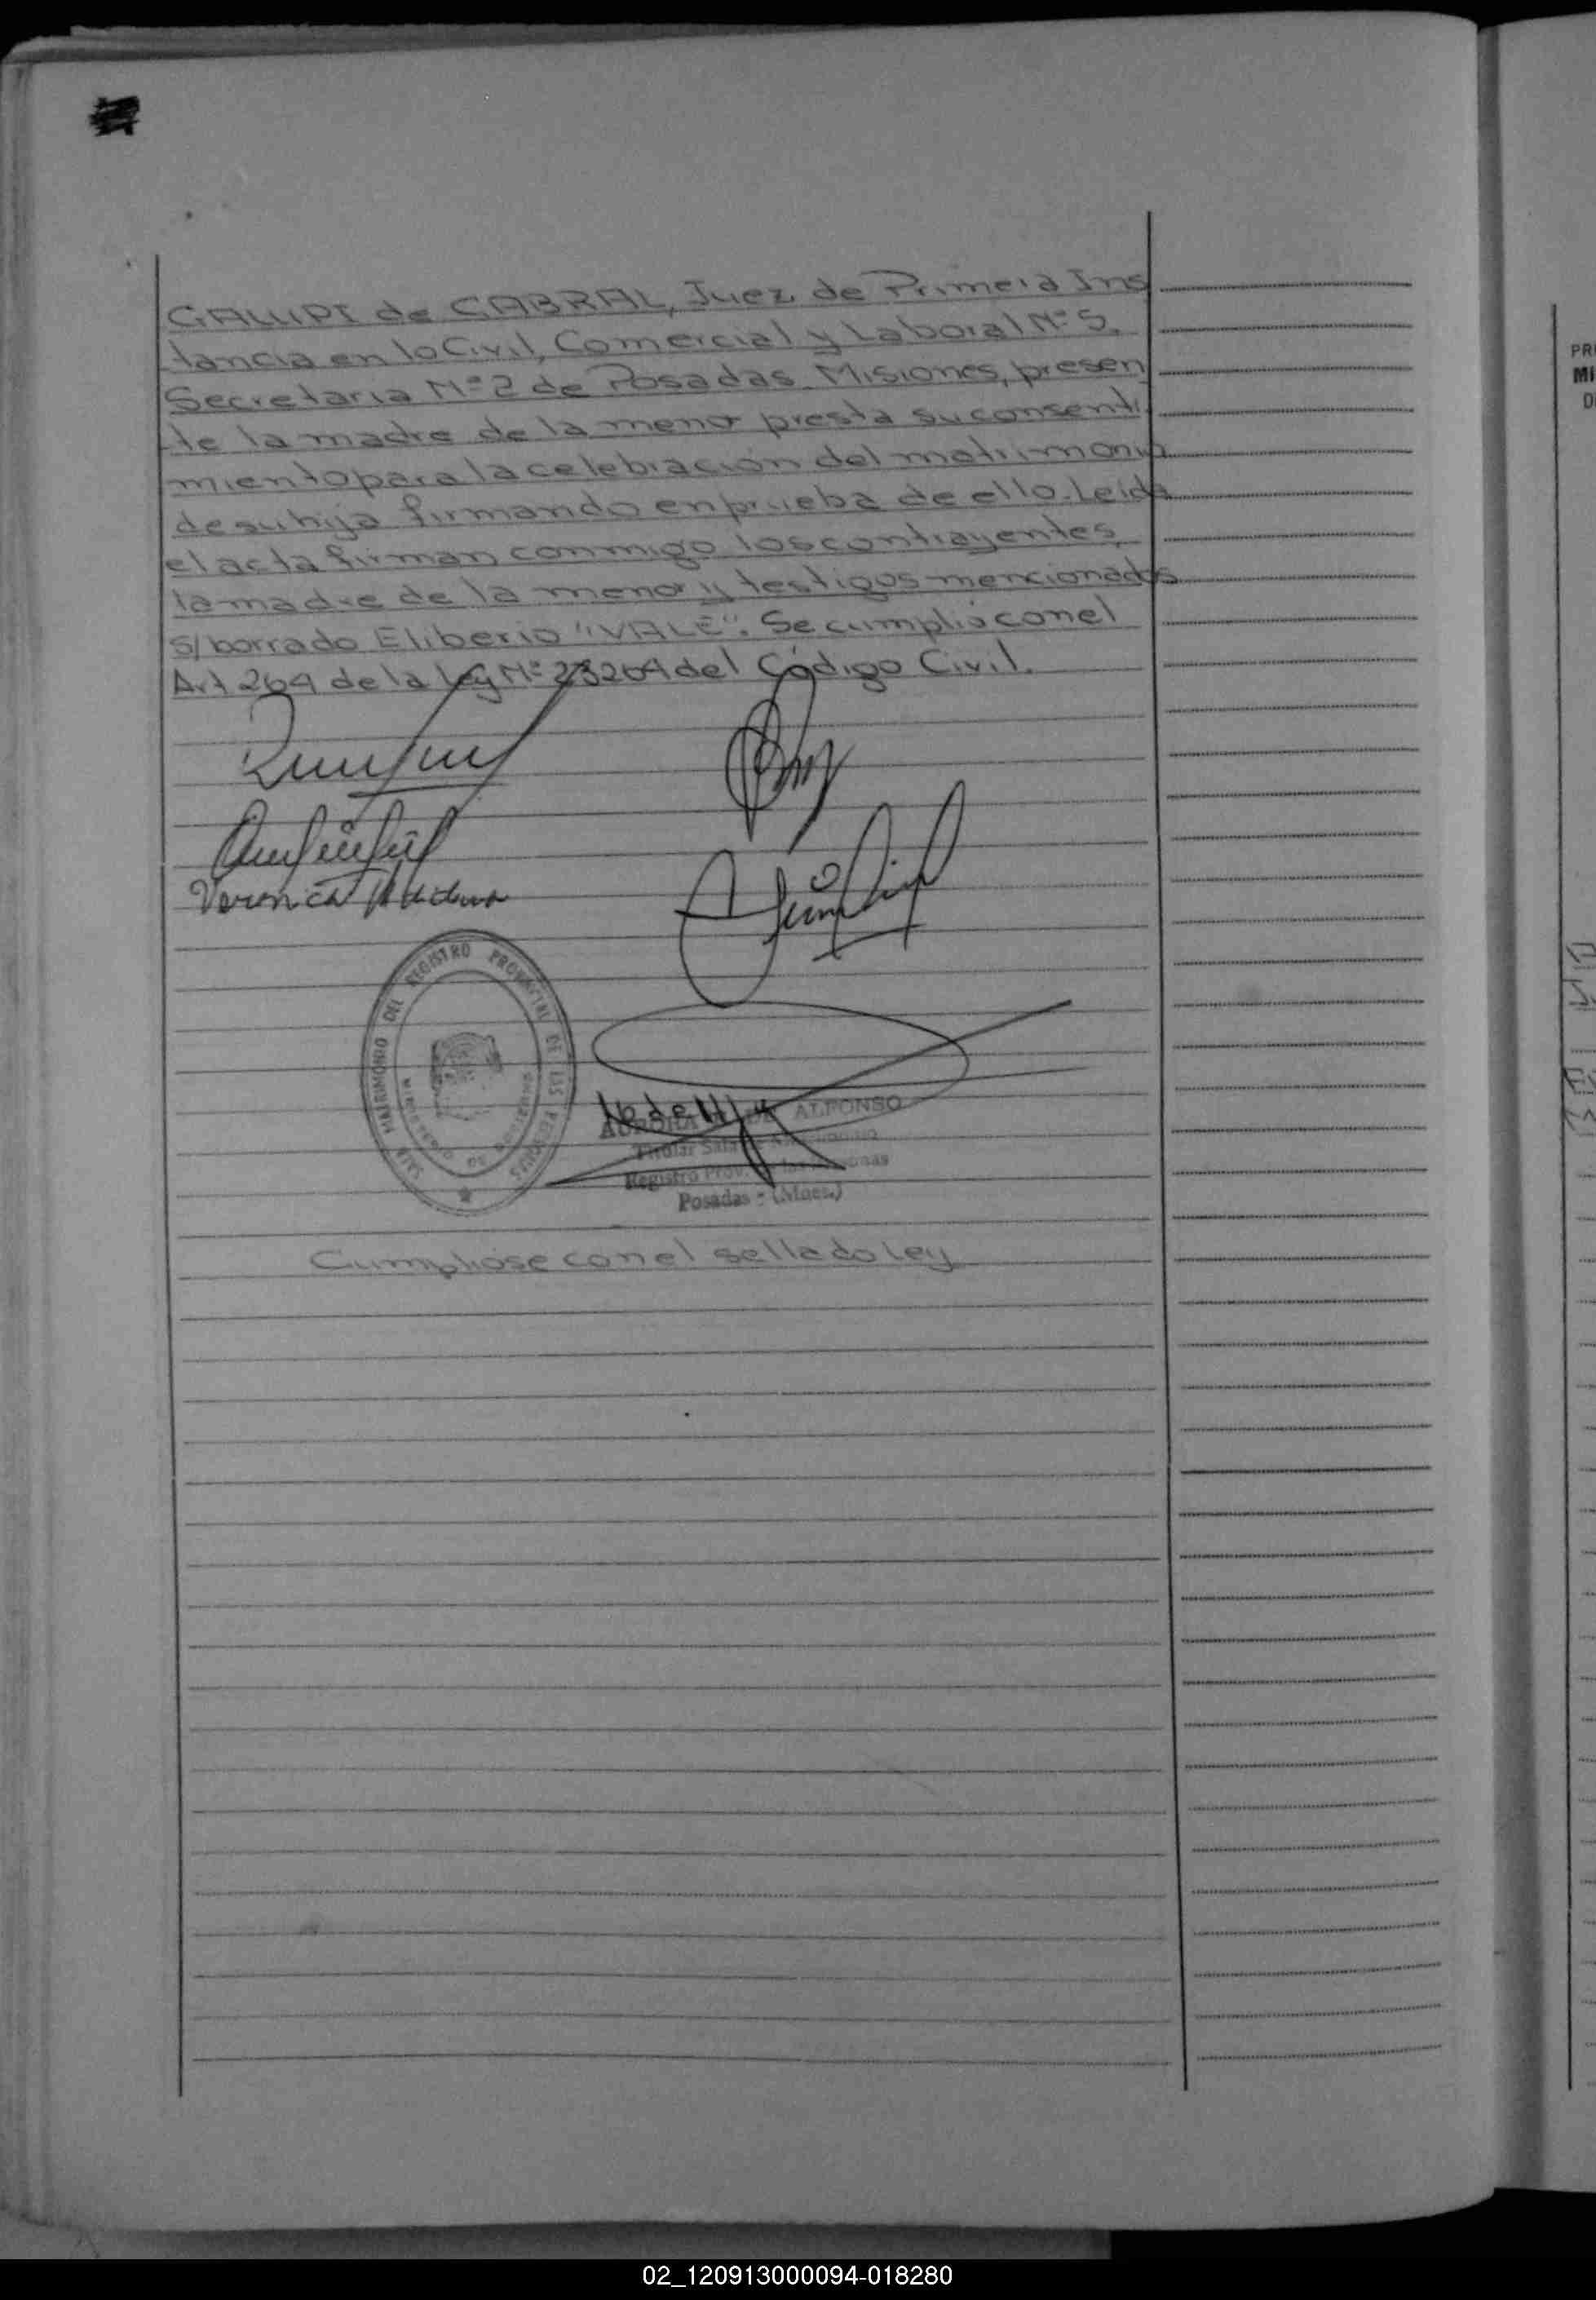 GALUPPI de CABRAL, Juez de Primera Ins
tancia en lo Civil, Comercial y Laboral Nº 5,
Secretaria Nº 2 de Posadas Misiones, presen
te la madre de la menor presta su consenti
miento para la celebración del matrimonio
de su hija firmando en prueba de ello. Leida
el acta firman conmigo los contrayentes,
la madre de la menor y testigos mencionados
S/borrado Eliberio "VALE". Se cumplió con el
Art 264 de la Ley Nº 23264 del Código Civil.
Veronica
SALA MATRIMONIO DEL REGISTRO PROVINCIAL DE LAS PERSONAS
AURORA DE ALFONSO
Titular Sala
Registro Prov. de las Personas
Posadas - (Mnes.)
Cumpliose con el sellado Ley
PR
MI
D
02_120913000094-018280